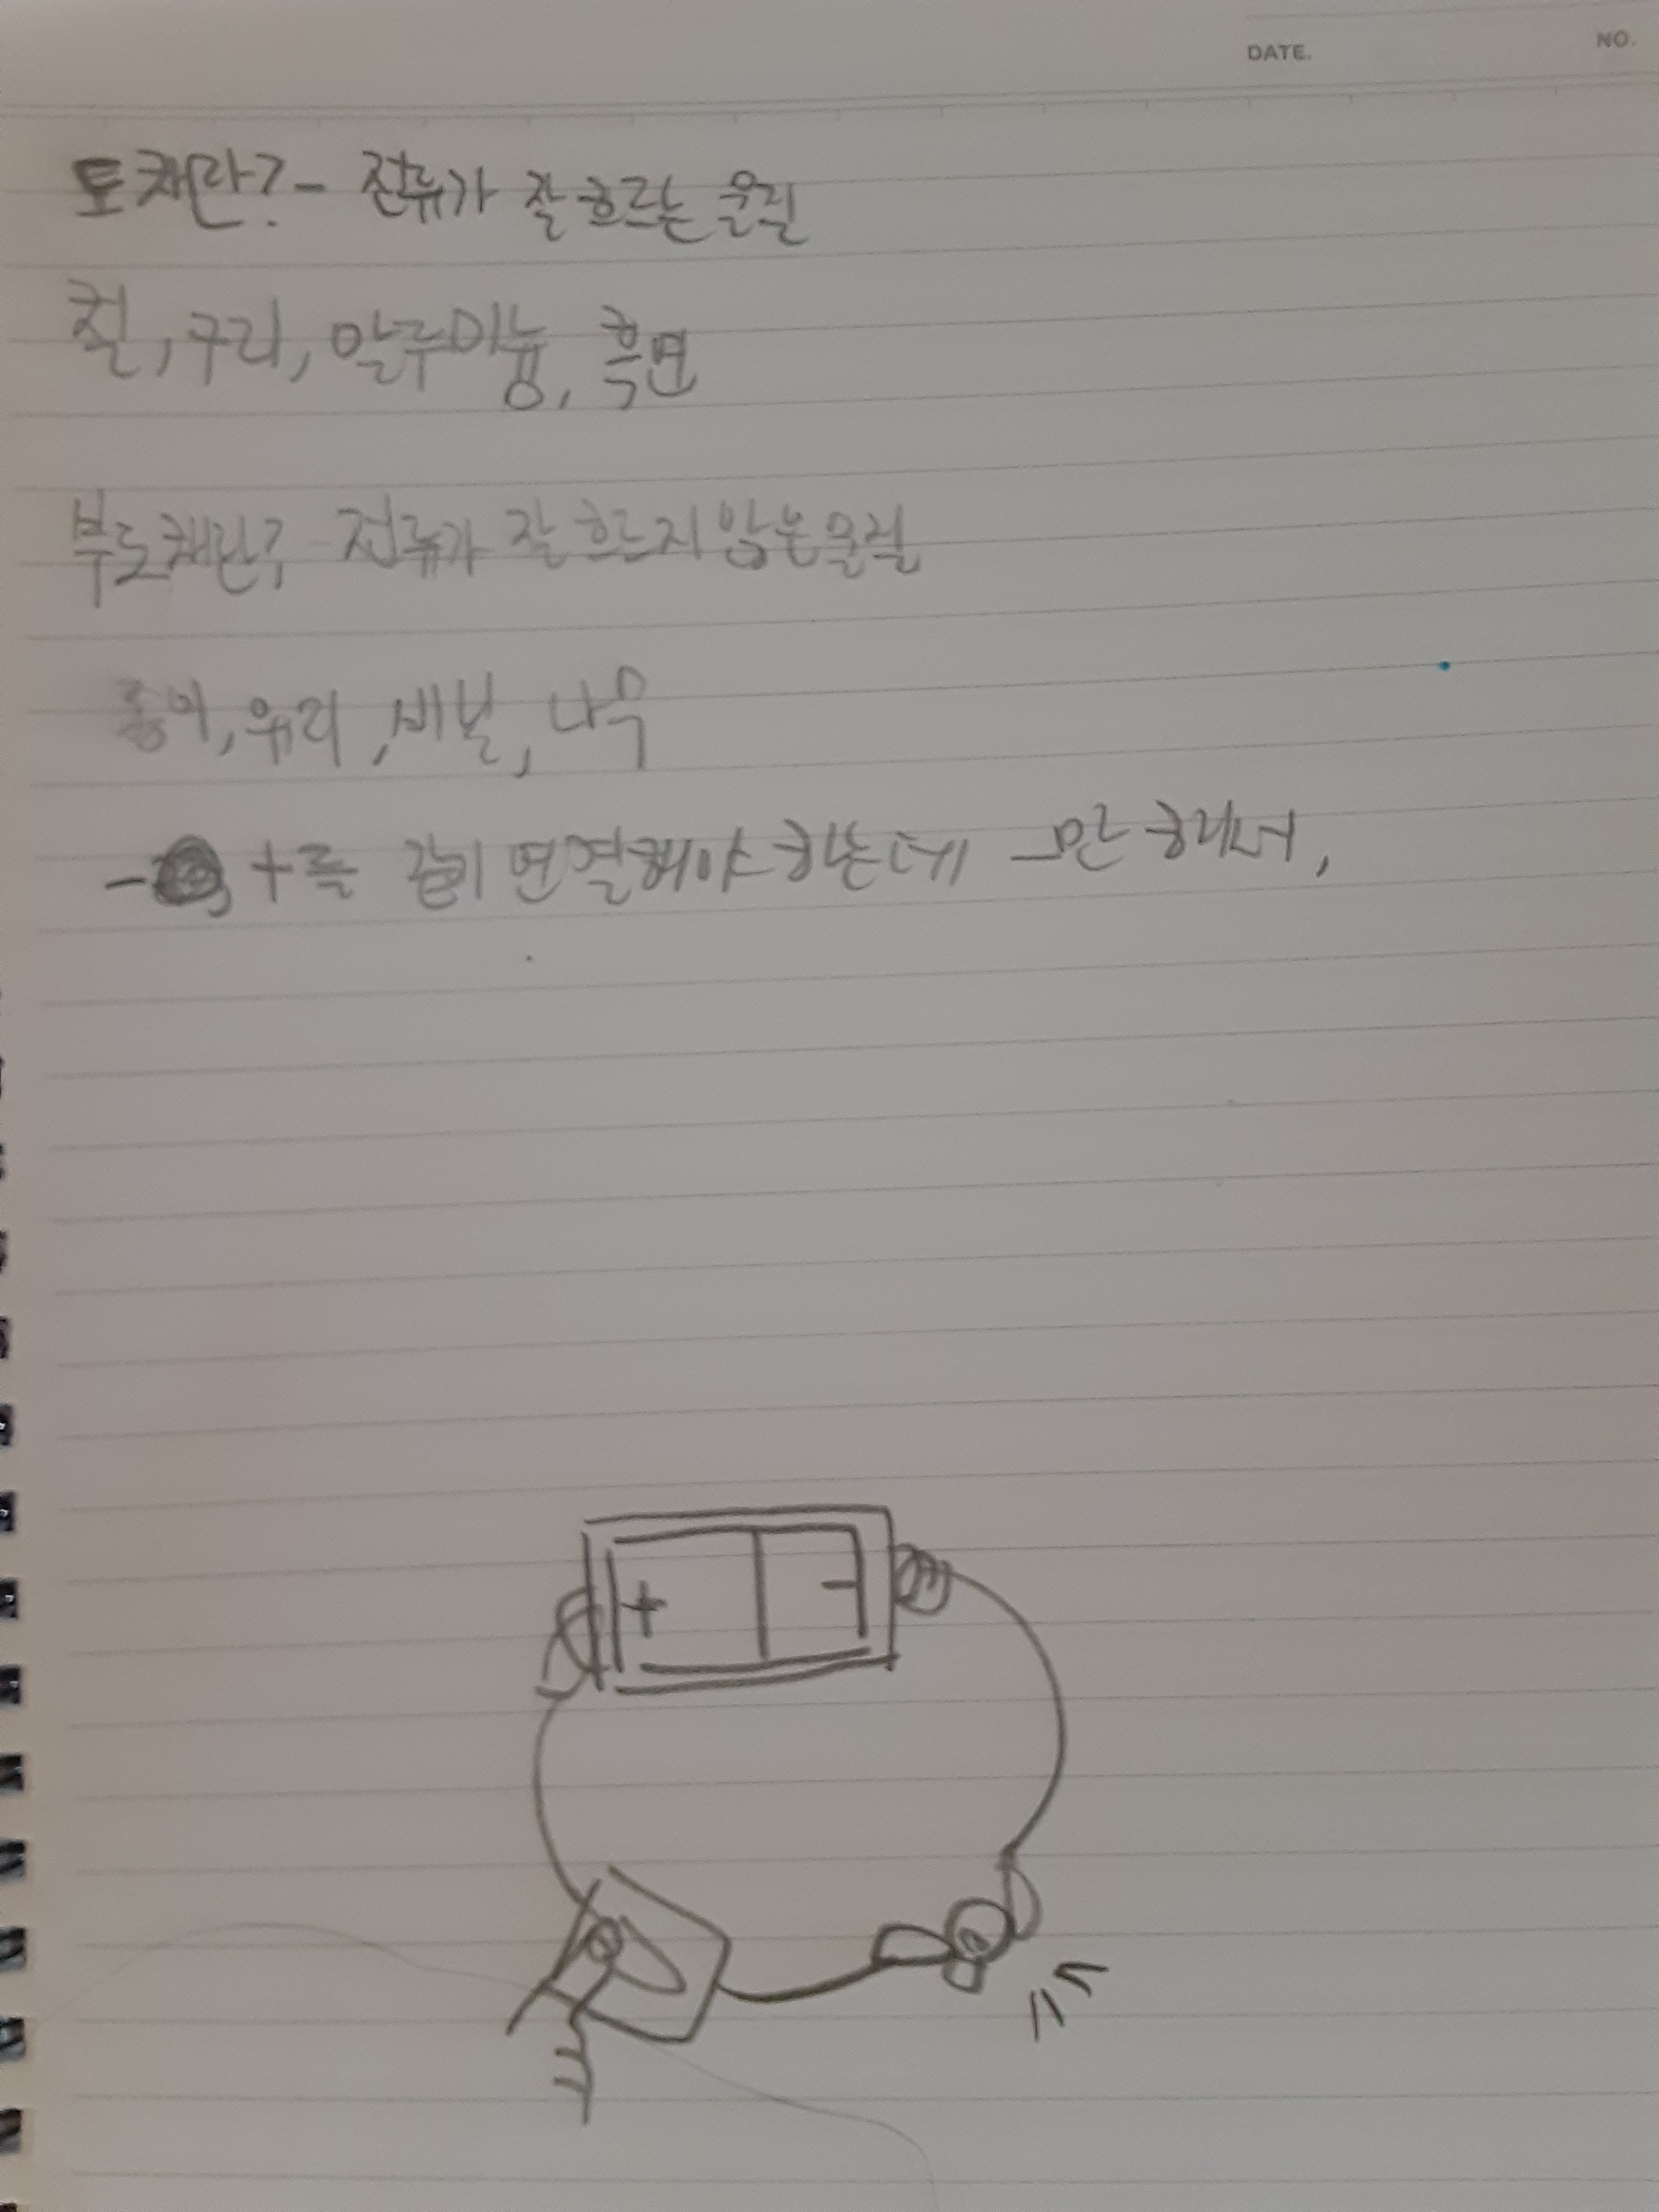 DATE.
NO.
도체란? - 전류가 잘 흐르는 물질
철, 구리, 알루미늄, 흑연
부도체란? 전류가 잘 흐르지 않는 물질
종이, 유리, 비닐, 나무
- + 를 같이 연결해야 하는데 -만 해서,
+ -